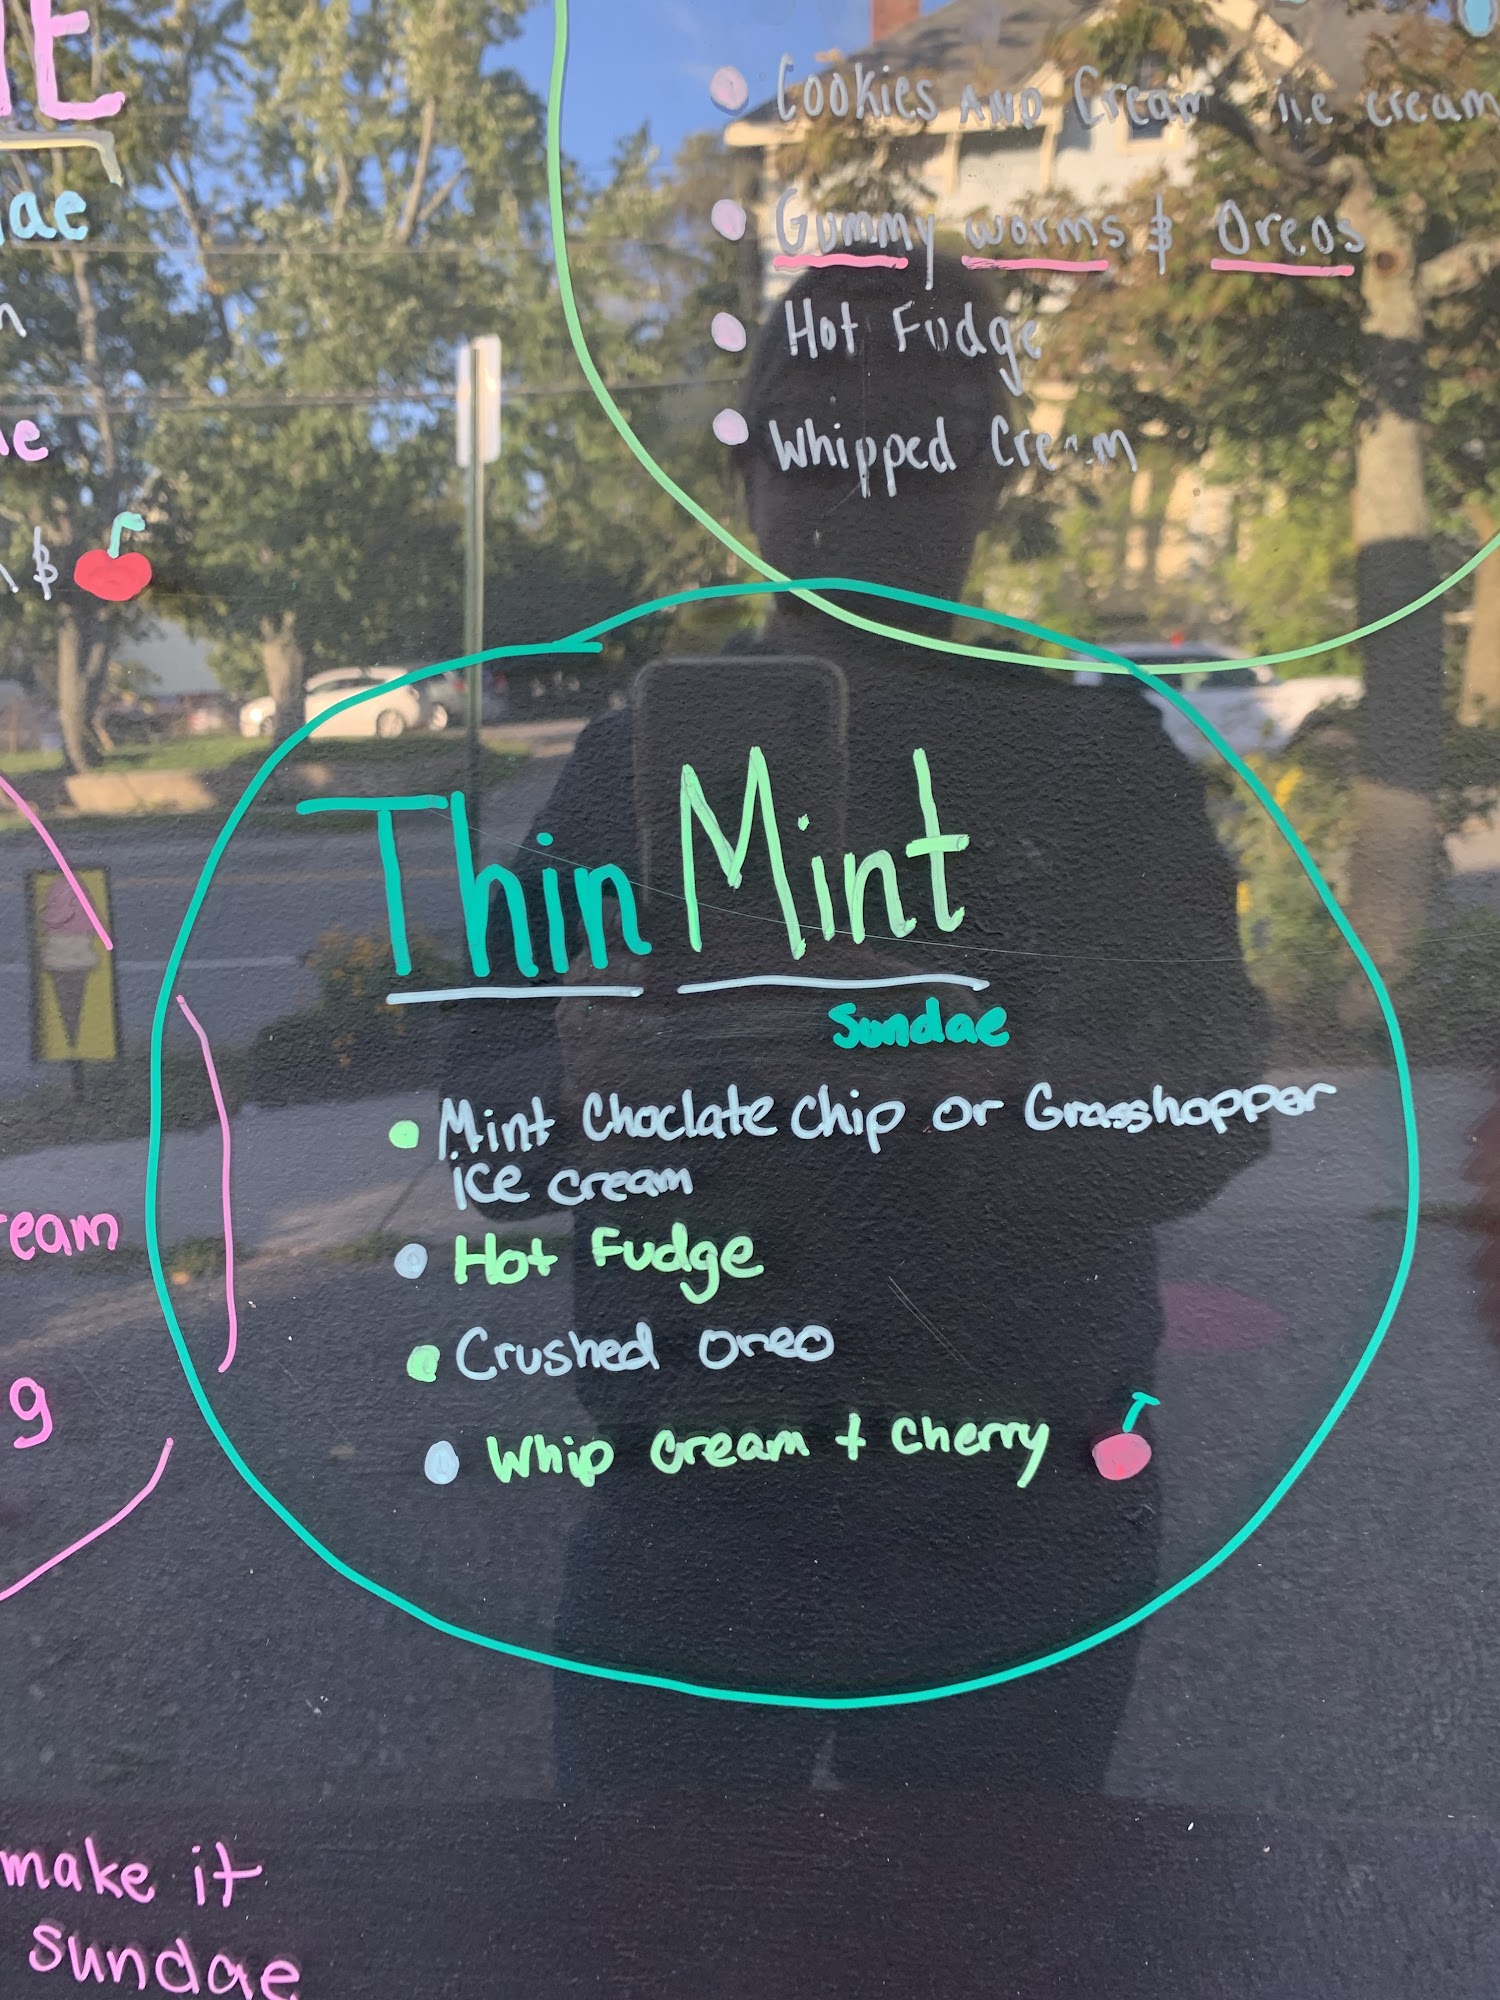 Cookies AND Cream ice cream
Gummy worms & Oreos
Hot Fudge
Whipped Cream
Thin Mint
Sundae
Mint Choclate chip or Grasshopper
ice cream
Hot Fudge
Crushed oreo
Whip cream + cherry
make it
sundae